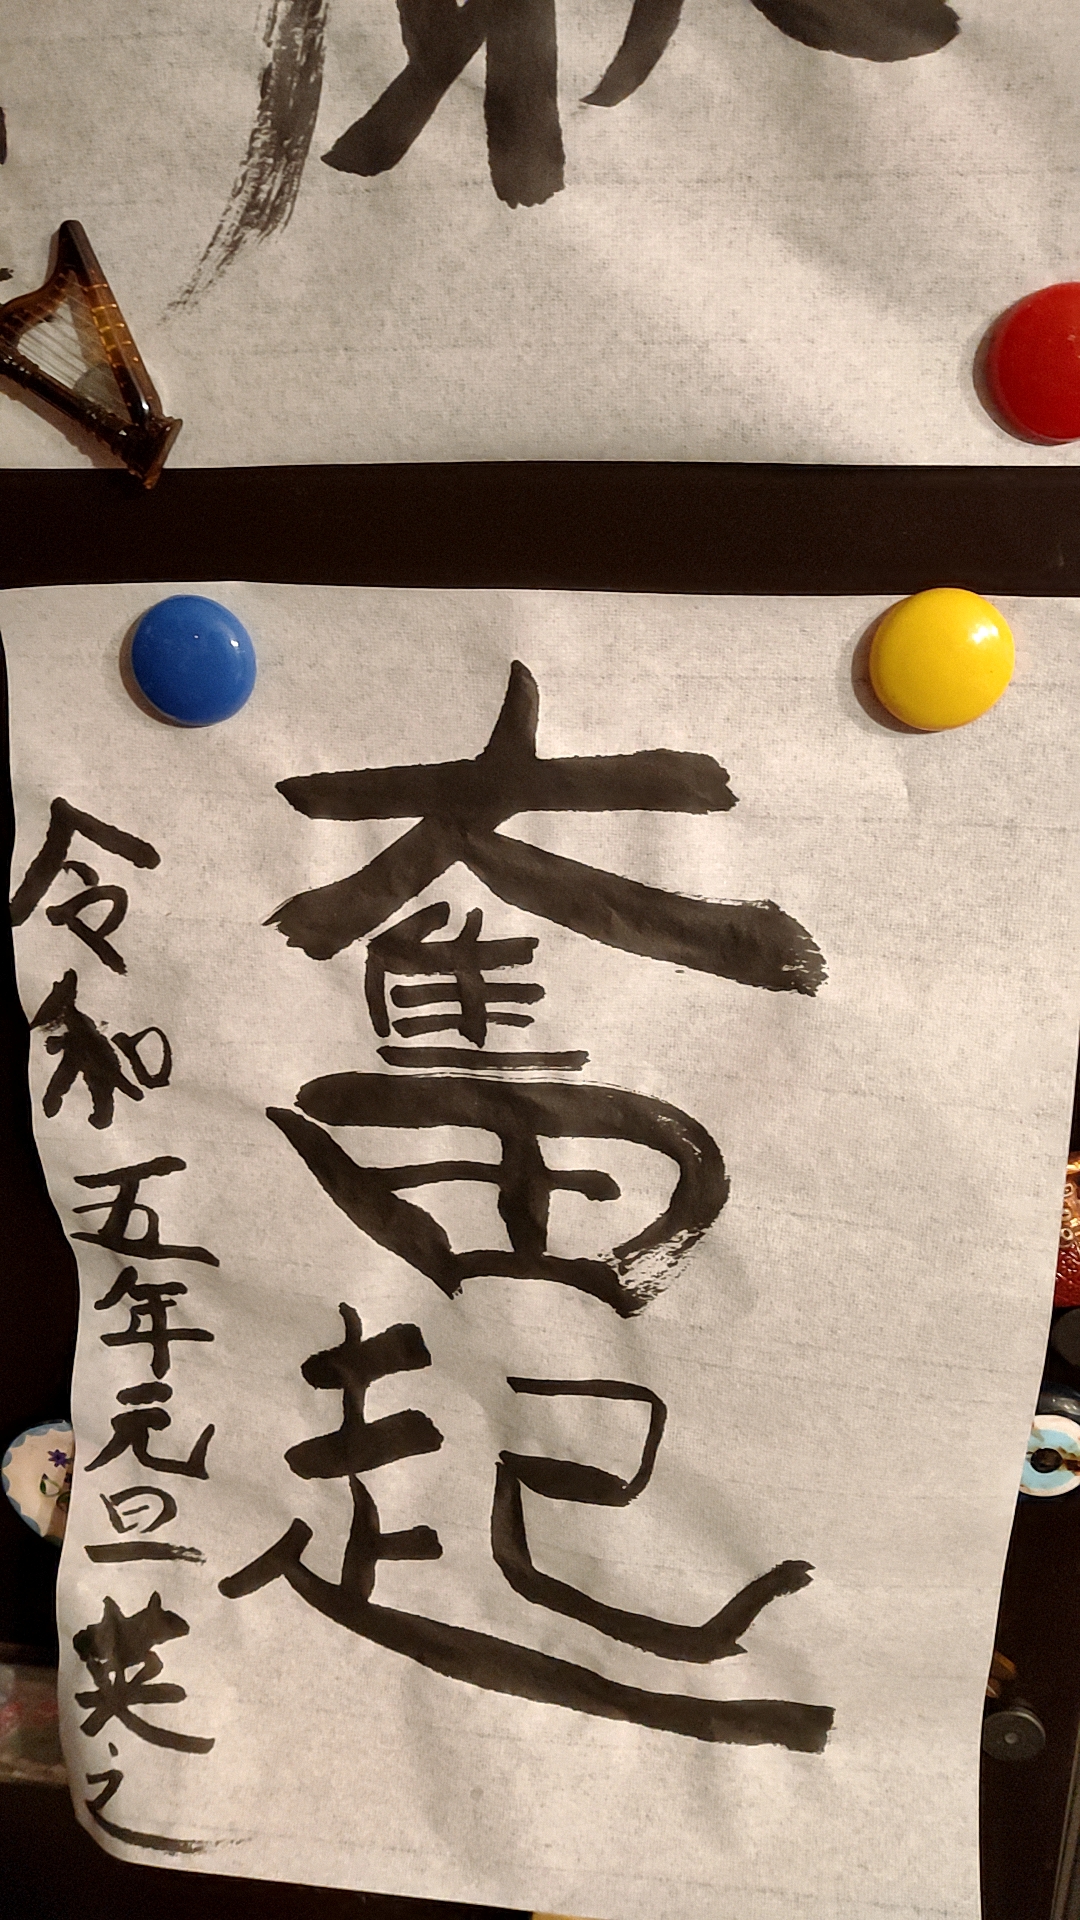 奮起
令和五年元旦 英之